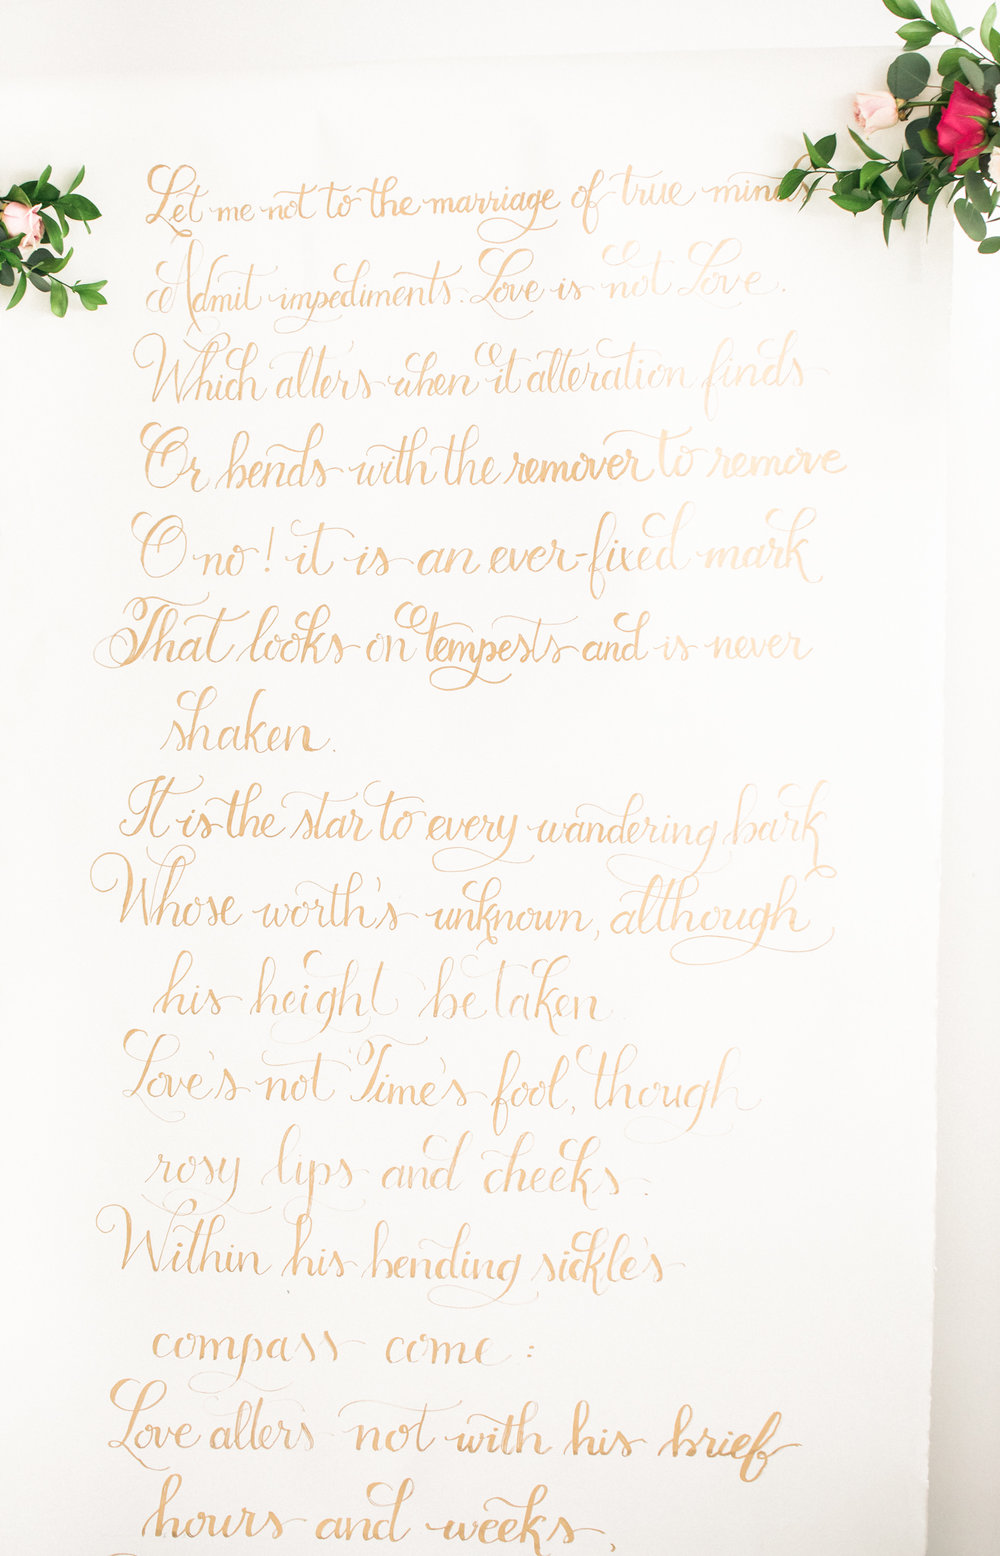 Let me not to the marriage of true minds
Admit impediments. Love is not Love.
Which alters when it alteration finds
Or bends with the remover to remove
O no! it is an ever-fixed mark
That looks on tempests and is never
shaken.
It is the star to every wandering bark
Whose worth's unknown, although
his height be taken.
Love's not Time's fool, though
rosy lips and cheeks.
Within his bending sickle's
compass come:
Love alters not with his brief
hours and weeks,